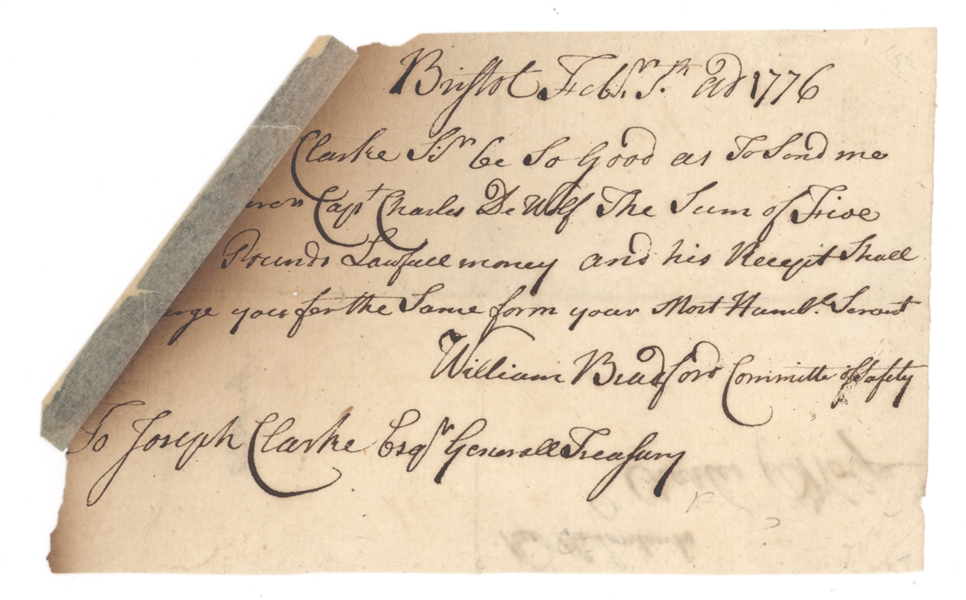 Bristol Febr. 5th AD 1776
Clarke Sir be So Good as To Send me
Capt Charles DeWolf The Sum of Five
Pounds Lawfull money and his Receipt Shall
you for the Same form your Most Humbl. Servant
William Bradford Committe of Safty
To Joseph Clarke Esqr Generall Treasury